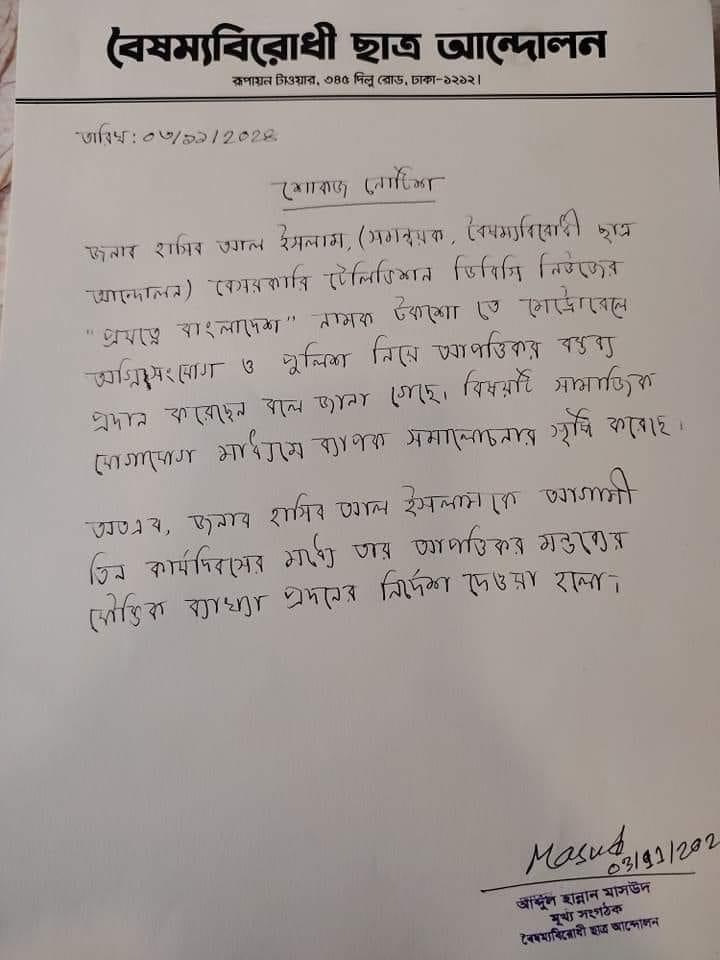 বৈষম্যবিরোধী ছাত্র আন্দোলন
রূপায়ন টাওয়ার, ৩৪৫ দিলু রোড, ঢাকা-১২১২।
তারিখ : ০৩/১১/2024
শোকজ নোটিশ
জনাব হাসিব আল ইসলাম, (সমন্বয়ক, বৈষম্যবিরোধী ছাত্র
আন্দোলন) বেসরকারি টেলিভিশন ডিবিসি নিউজের
"প্রযত্নে বাংলাদেশ" নামক টকশো তে মেট্রোরেলে
অগ্নিসংযোগ ও পুলিশ নিয়ে আপত্তিকর বক্তব্য
প্রদান করেছেন বলে জানা গেছে। বিষয়টি সামাজিক
যোগাযোগ মাধ্যমে ব্যাপক সমালোচনার সৃষ্টি করেছে।
অতএব, জনাব হাসিব আল ইসলামকে আগামী
তিন কার্যদিবসের মধ্যে তার আপত্তিকর মন্তব্যের
যৌক্তিক ব্যাখ্যা প্রদনের নির্দেশ দেওয়া হলো।
Masud
03/11/202
আব্দুল হান্নান মাসউদ
মূখ্য সংগঠক
বৈষম্যবিরোধী ছাত্র আন্দোলন